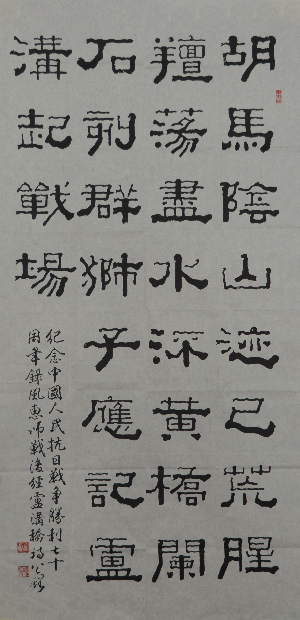 胡馬陰山迹已荒腥
羶蕩盡水深黄橋闌
石刻群獅子應記盧
溝起戰場
紀念中國人民抗日戰爭勝利七十
周年錄風惠師戰後經盧溝橋詩